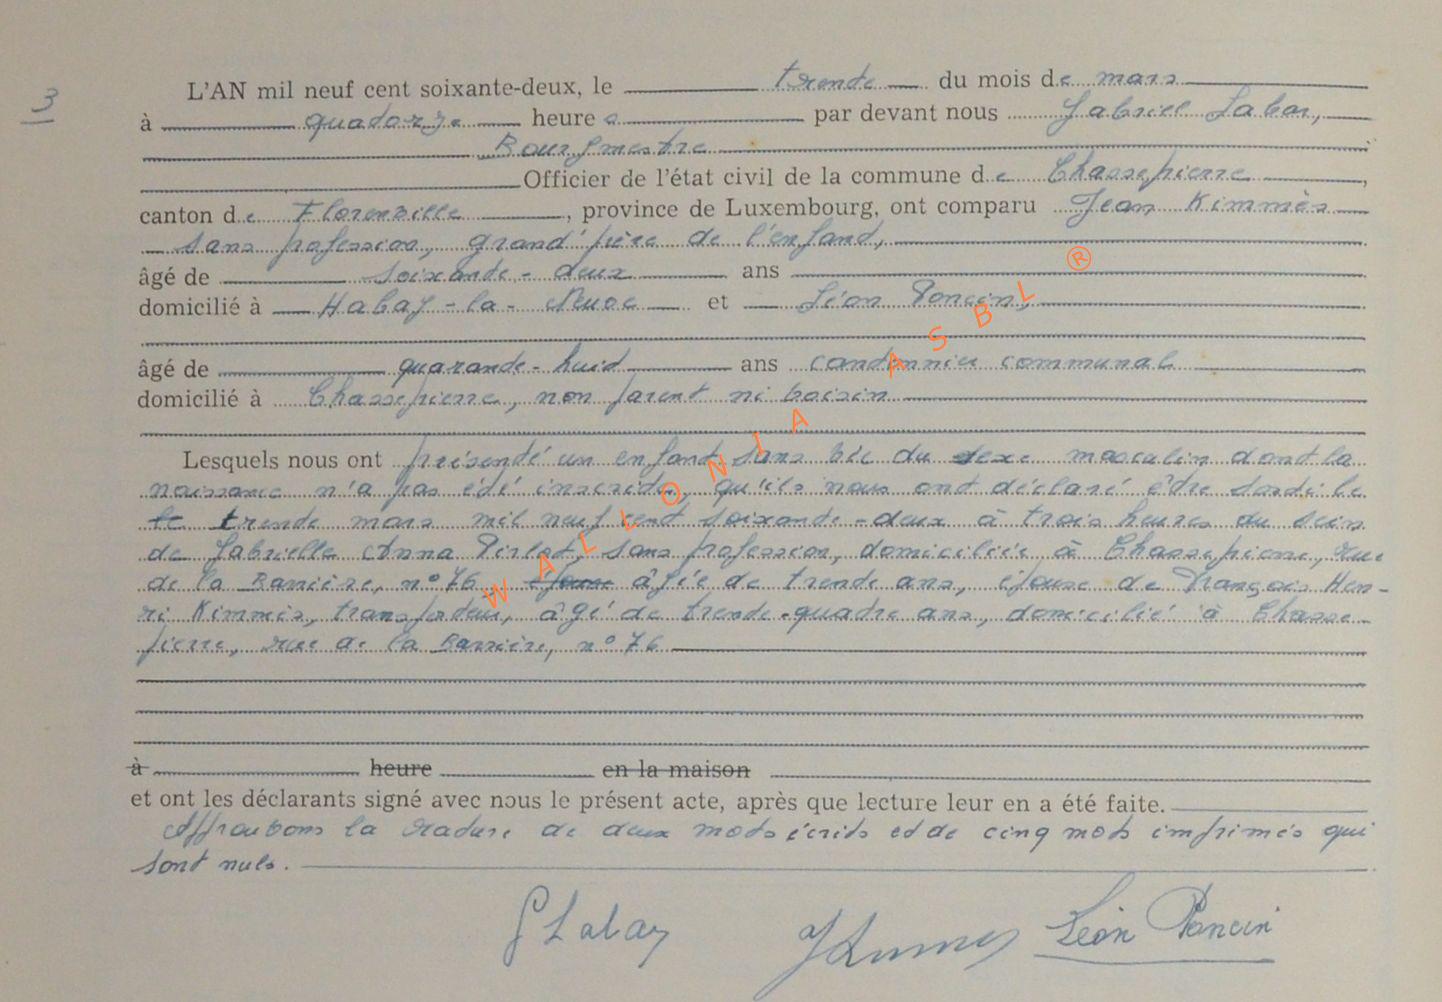 3
L'AN mil neuf cent soixante-deux, le trente du mois de mars
à quatorze heures par devant nous Gabriel Labar,
Bourgmestre
Officier de l'état civil de la commune de Chassepierre,
canton de Florenville, province de Luxembourg, ont comparu Jean Kimmès
sans profession, grand'père de l'enfant,
âgé de soixante-deux ans
domicilié à Habay-la-Neuve et Léon Poncin,
âgé de quarante-huit ans cantonnier communal
domicilié à Chassepierre, non parent ni voisin
Lesquels nous ont présenté un enfant sans vie du sexe masculin dont la
naissance n'a pas été inscrite, qu'ils nous ont déclaré être sorti le
le trente mars mil neuf cent soixante-deux à trois heures du sein
de Gabrielle Anna Pirlot, sans profession, domiciliée à Chassepierre, rue
de la Barrière, n° 76, épouse âgée de trente ans, épouse de François Hen-
ri Kimmès, transporteur, âgé de trente-quatre ans, domicilié à Chasse-
pierre, rue de la Barrière, n° 76
à heure en la maison
et ont les déclarants signé avec nous le présent acte, après que lecture leur en a été faite.
Approuvons la rature de deux mots écrits et de cinq mots imprimés qui
sont nuls.
G Labar JKimmes Léon Poncin
WALLONIA ASBL ®